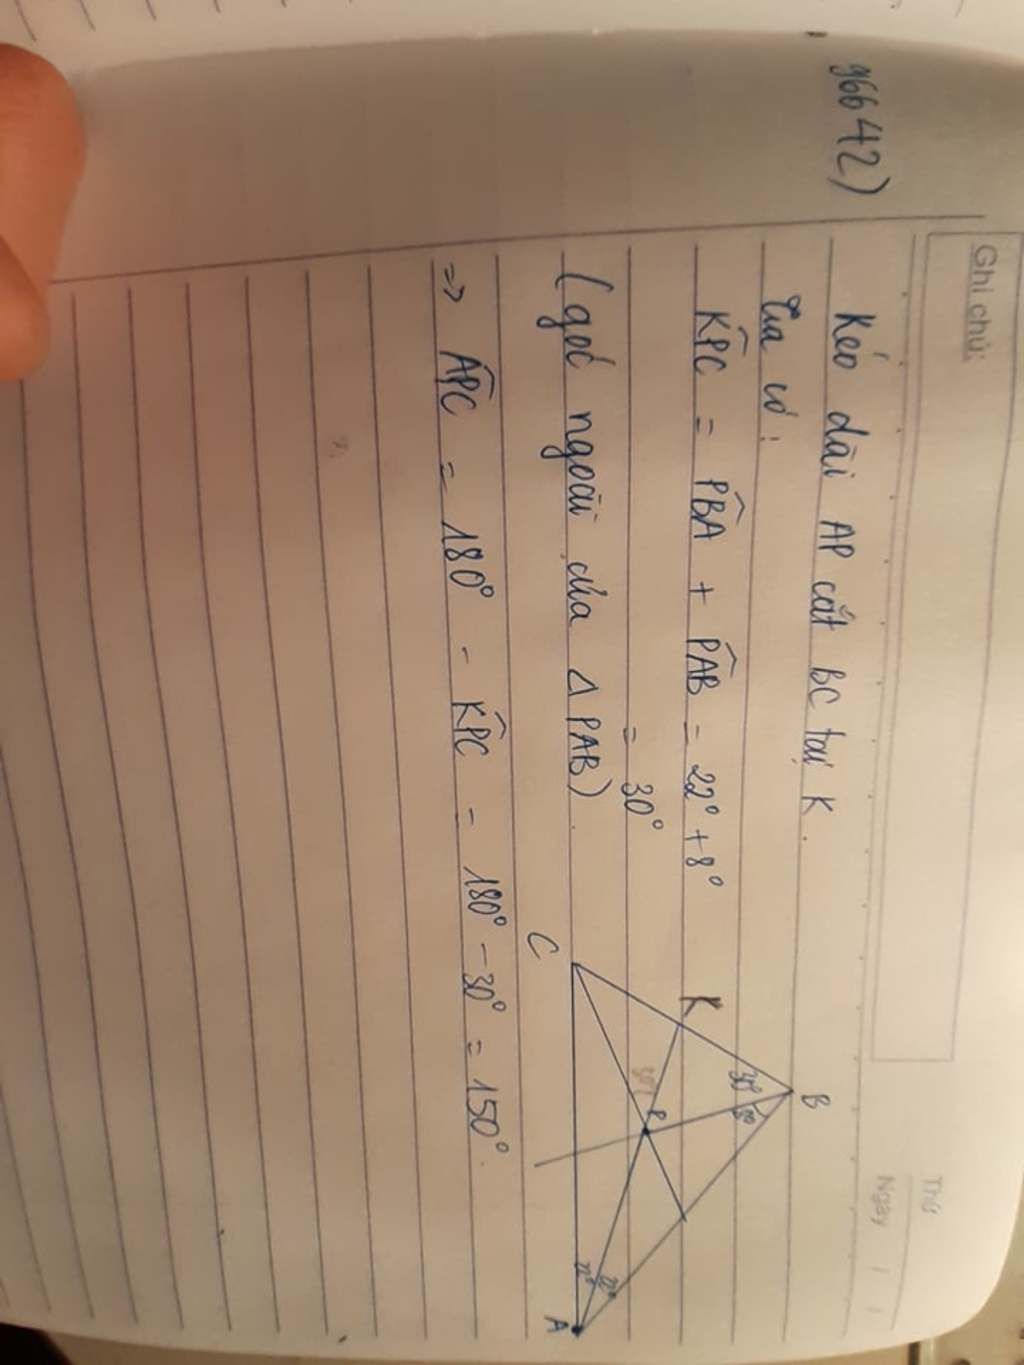 Ghi chú:
Thứ
Ngày / /
96642)
Kéo dài AP cắt BC tại K.
Ta có:
KPC = PBA + PAB = 22° + 8°
= 30°
(góc ngoài của Δ PAB).
=> APC = 180° - KPC - 180° - 30° = 150°.
B
K
P
C
A